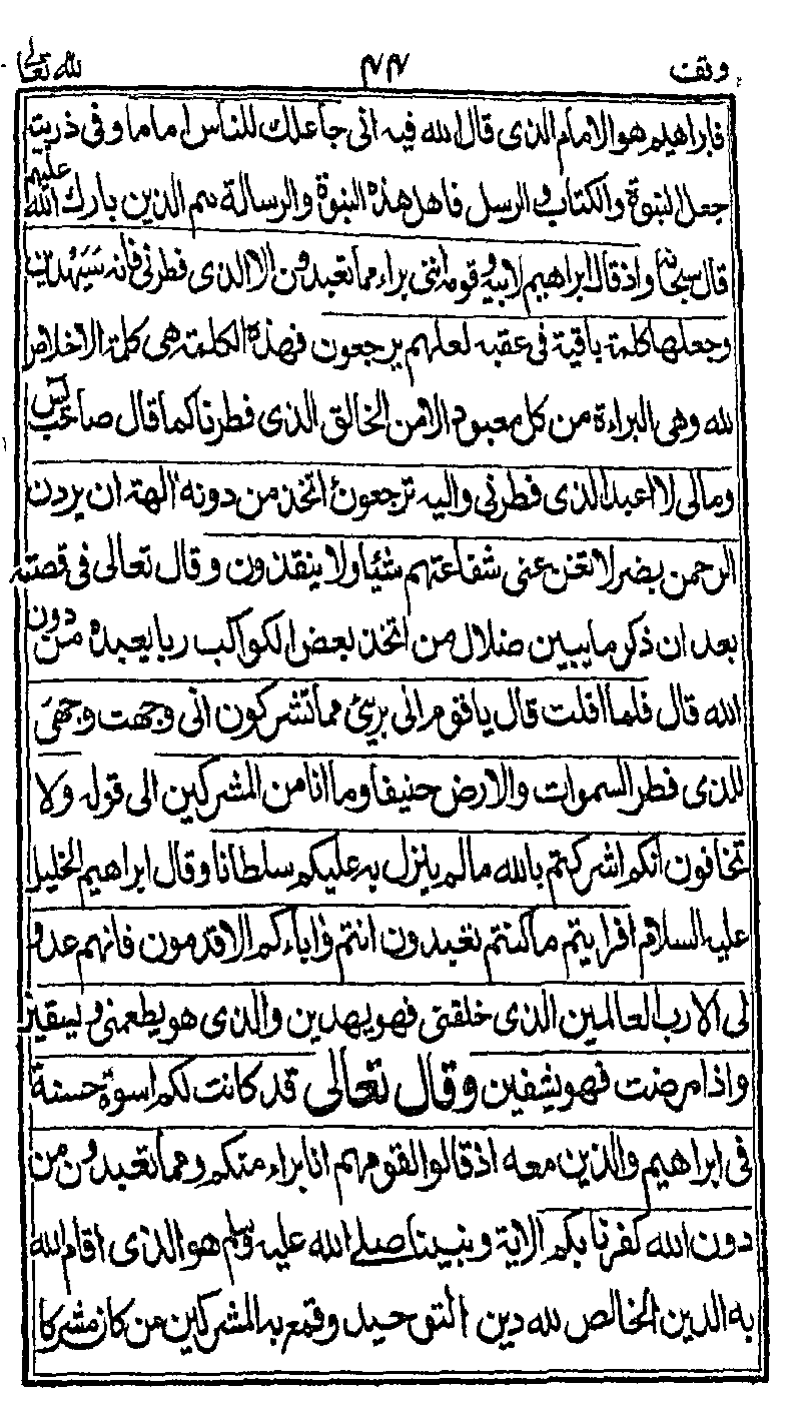 وقف ٤٤ لله تعالى
فابراهيم هو الامام الذى قال الله فيه انى جاعلك للناس اماما وفى ذريته
جعل النبوة والكتاب والرسل فاهل هذه النبوة والرسالة هم الذين بارك الله عليهم
قال سبحانه واذ قال ابراهيم لابيه وقومه اننى براء مما تعبدون الا الذى فطرنى فانه سيهدين
وجعلها كلمة باقية فى عقبه لعلهم يرجعون فهذه الكلمة هى كلمة الاخلاص
لله وهى البراءة من كل معبود الا من الخالق الذى فطرنا كما قال صاحب يس
ومالى لا اعبد الذى فطرنى واليه ترجعون ءاتخذ من دونه الهة ان يردن
الرحمن بضر لا تغن عنى شفاعتهم شيئا ولا ينقذون وقال تعالى فى قصته
بعد ان ذكر ما يبين ضلال من اتخذ بعض الكواكب ربا يعبده من دون
الله قال فلما افلت قال يا قوم انى برئ مما تشركون انى وجهت وجهى
للذى فطر السموات والارض حنيفا وما انا من المشركين الى قوله ولا
تخافون انكم اشركتم بالله ما لم ينزل به عليكم سلطانا وقال ابراهيم الخليل
عليه السلام افرايتم ما كنتم تعبدون انتم واباءكم الاقدمون فانهم عدو
لى الا رب العالمين الذى خلقنى فهو يهدين والذى هو يطعمنى ويسقين
واذا مرضت فهو يشفين وقال تعالى قد كانت لكم اسوة حسنة
فى ابراهيم والذين معه اذ قالوا لقومهم انا براء منكم ومما تعبدون من
دون الله كفرنا بكم الاية ونبينا صلى الله عليه وسلم هو الذى اقام الله
به الدين الخالص لله دين التوحيد وقمع به المشركين من كان مشركا